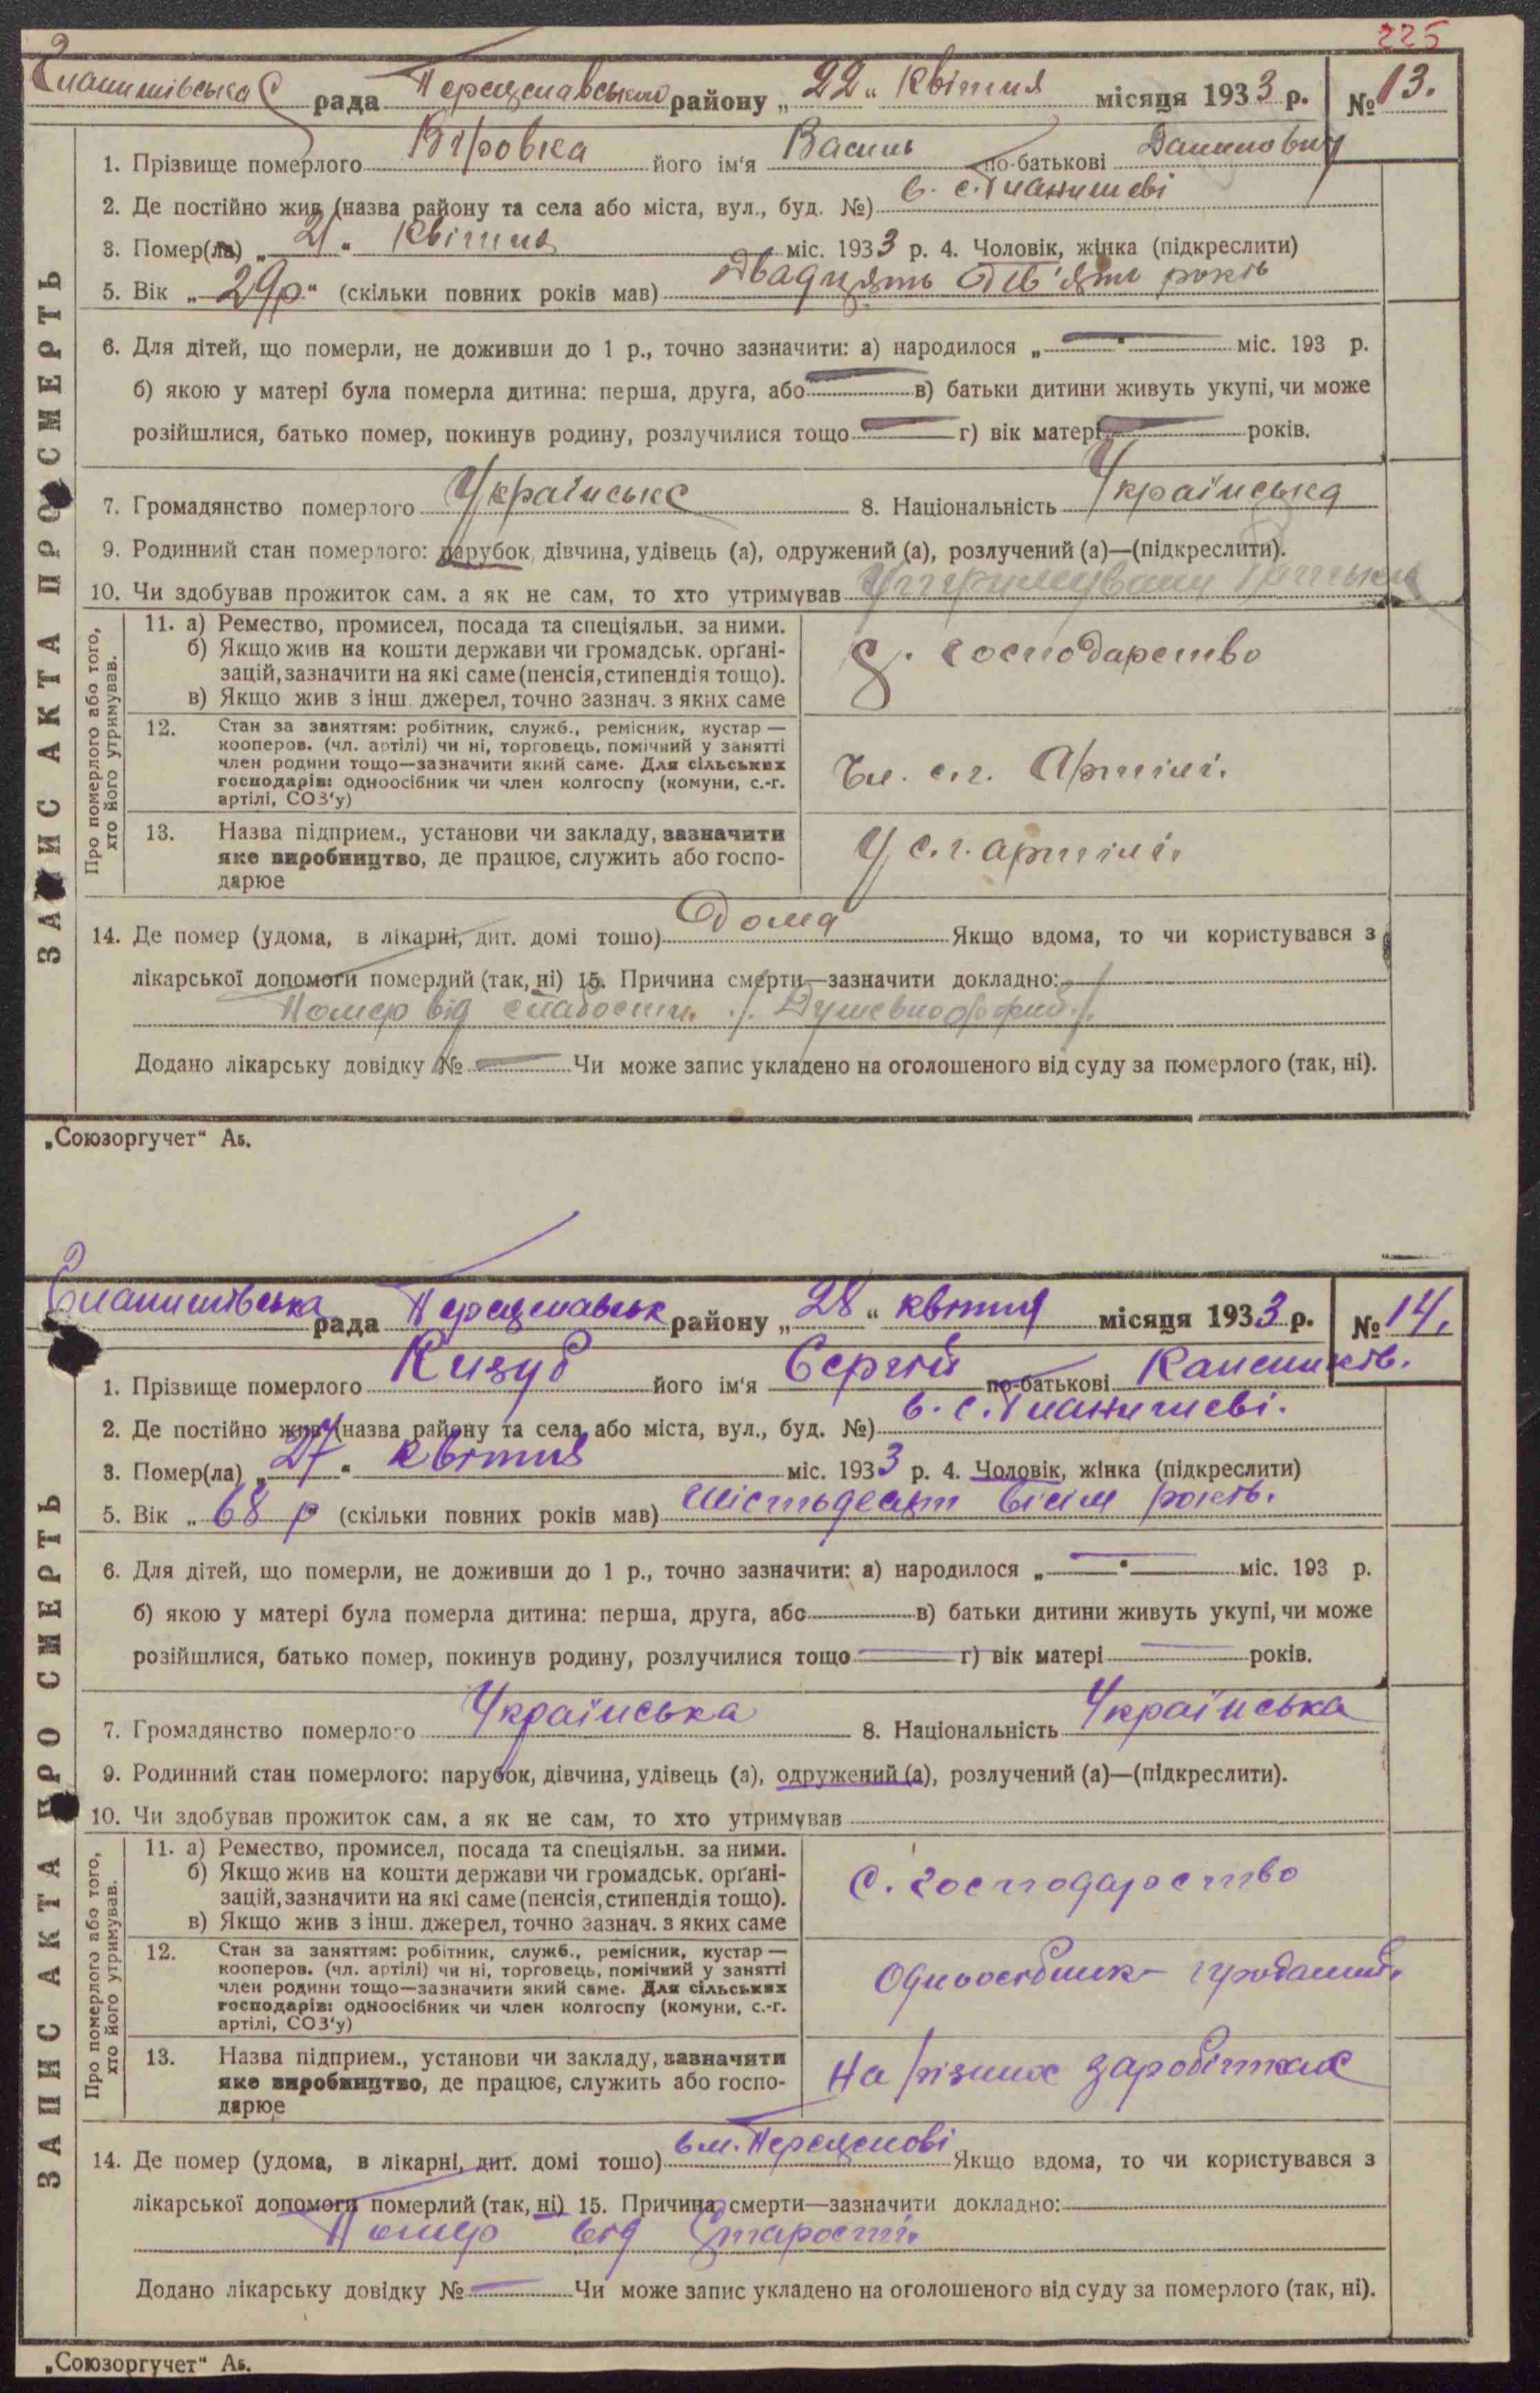 225
рада Переяславського району „22“ Квітня місяця 1933 р. № 13.
1. Прізвище померлого Вірьовка його ім'я Василь по-батькові Данилович
2. Де постійно жив (назва району та села або міста, вул., буд. №) в. с.
3. Помер(ла) „21“ Квітня міс. 1933 р. 4. Чоловік, жінка (підкреслити)
5. Вік „29р“ (скільки повних років мав) двадцять дев'ять років
6. Для дітей, що померли, не доживши до 1 р., точно зазначити: а) народилося „ “ міс. 193 р.
б) якою у матері була померла дитина: перша, друга, або в) батьки дитини живуть укупі, чи може
розійшлися, батько помер, покинув родину, розлучилися тощо г) вік матері років.
7. Громадянство померлого Українське 8. Національність Українська
9. Родинний стан померлого: парубок, дівчина, удівець (а), одружений (а), розлучений (а)—(підкреслити).
10. Чи здобував прожиток сам, а як не сам, то хто утримував Утримували батьки
ЗАПИС АКТА ПРО СМЕРТЬ
Про померлого або того, хто його утримував.
11. а) Ремество, промисел, посада та спеціяльн. за ними.
б) Якщо жив на кошти держави чи громадськ. орґані-
зацій, зазначити на які саме (пенсія, стипендія тощо).
в) Якщо жив з інш. джерел, точно зазнач. з яких саме
С. господарство
12. Стан за заняттям: робітник, служб., ремісник, кустар —
кооперов. (чл. артілі) чи ні, торговець, помічний у занятті
член родини тощо—зазначити який саме. Для сільських
господарів: одноосібник чи член колгоспу (комуни, с.-г.
артілі, СОЗ'у)
Чл. с.г. Артілі.
13. Назва підприєм., установи чи закладу, зазначити
яке виробництво, де працює, служить або госпо-
дарює
У с.г. артілі.
14. Де помер (удома, в лікарні, дит. домі тощо) Дома Якщо вдома, то чи користувався з
лікарської допомоги померлий (так, ні) 15. Причина смерти—зазначити докладно:
Помер від слабости. /. Душевнохорий./.
Додано лікарську довідку № Чи може запис укладено на оголошеного від суду за померлого (так, ні).
„Союзоргучет“ Аб.
рада Переяславськ району „28“ квітня місяця 1933 р. № 14.
1. Прізвище померлого Кизуб його ім'я Сергій по-батькові
2. Де постійно жив (назва району та села або міста, вул., буд. №) в. с.
3. Помер(ла) „27“ квітня міс. 1933 р. 4. Чоловік, жінка (підкреслити)
5. Вік „68 р“ (скільки повних років мав) шістьдесят вісім років.
6. Для дітей, що померли, не доживши до 1 р., точно зазначити: а) народилося „ “ міс. 193 р.
б) якою у матері була померла дитина: перша, друга, або в) батьки дитини живуть укупі, чи може
розійшлися, батько помер, покинув родину, розлучилися тощо г) вік матері років.
7. Громадянство померлого Українська 8. Національність Українська
9. Родинний стан померлого: парубок, дівчина, удівець (а), одружений (а), розлучений (а)—(підкреслити).
10. Чи здобував прожиток сам, а як не сам, то хто утримував
ЗАПИС АКТА ПРО СМЕРТЬ
Про померлого або того, хто його утримував.
11. а) Ремество, промисел, посада та спеціяльн. за ними.
б) Якщо жив на кошти держави чи громадськ. орґані-
зацій, зазначити на які саме (пенсія, стипендія тощо).
в) Якщо жив з інш. джерел, точно зазнач. з яких саме
С. господарство
12. Стан за заняттям: робітник, служб., ремісник, кустар —
кооперов. (чл. артілі) чи ні, торговець, помічний у занятті
член родини тощо—зазначити який саме. Для сільських
господарів: одноосібник чи член колгоспу (комуни, с.-г.
артілі, СОЗ'у)
Одноосібник –
13. Назва підприєм., установи чи закладу, зазначити
яке виробництво, де працює, служить або госпо-
дарює
на різних заробітках
14. Де помер (удома, в лікарні, дит. домі тощо) в м. Переяслові Якщо вдома, то чи користувався з
лікарської допомоги померлий (так, ні) 15. Причина смерти—зазначити докладно:
Помер від Старости.
Додано лікарську довідку № Чи може запис укладено на оголошеного від суду за померлого (так, ні).
„Союзоргучет“ Аб.